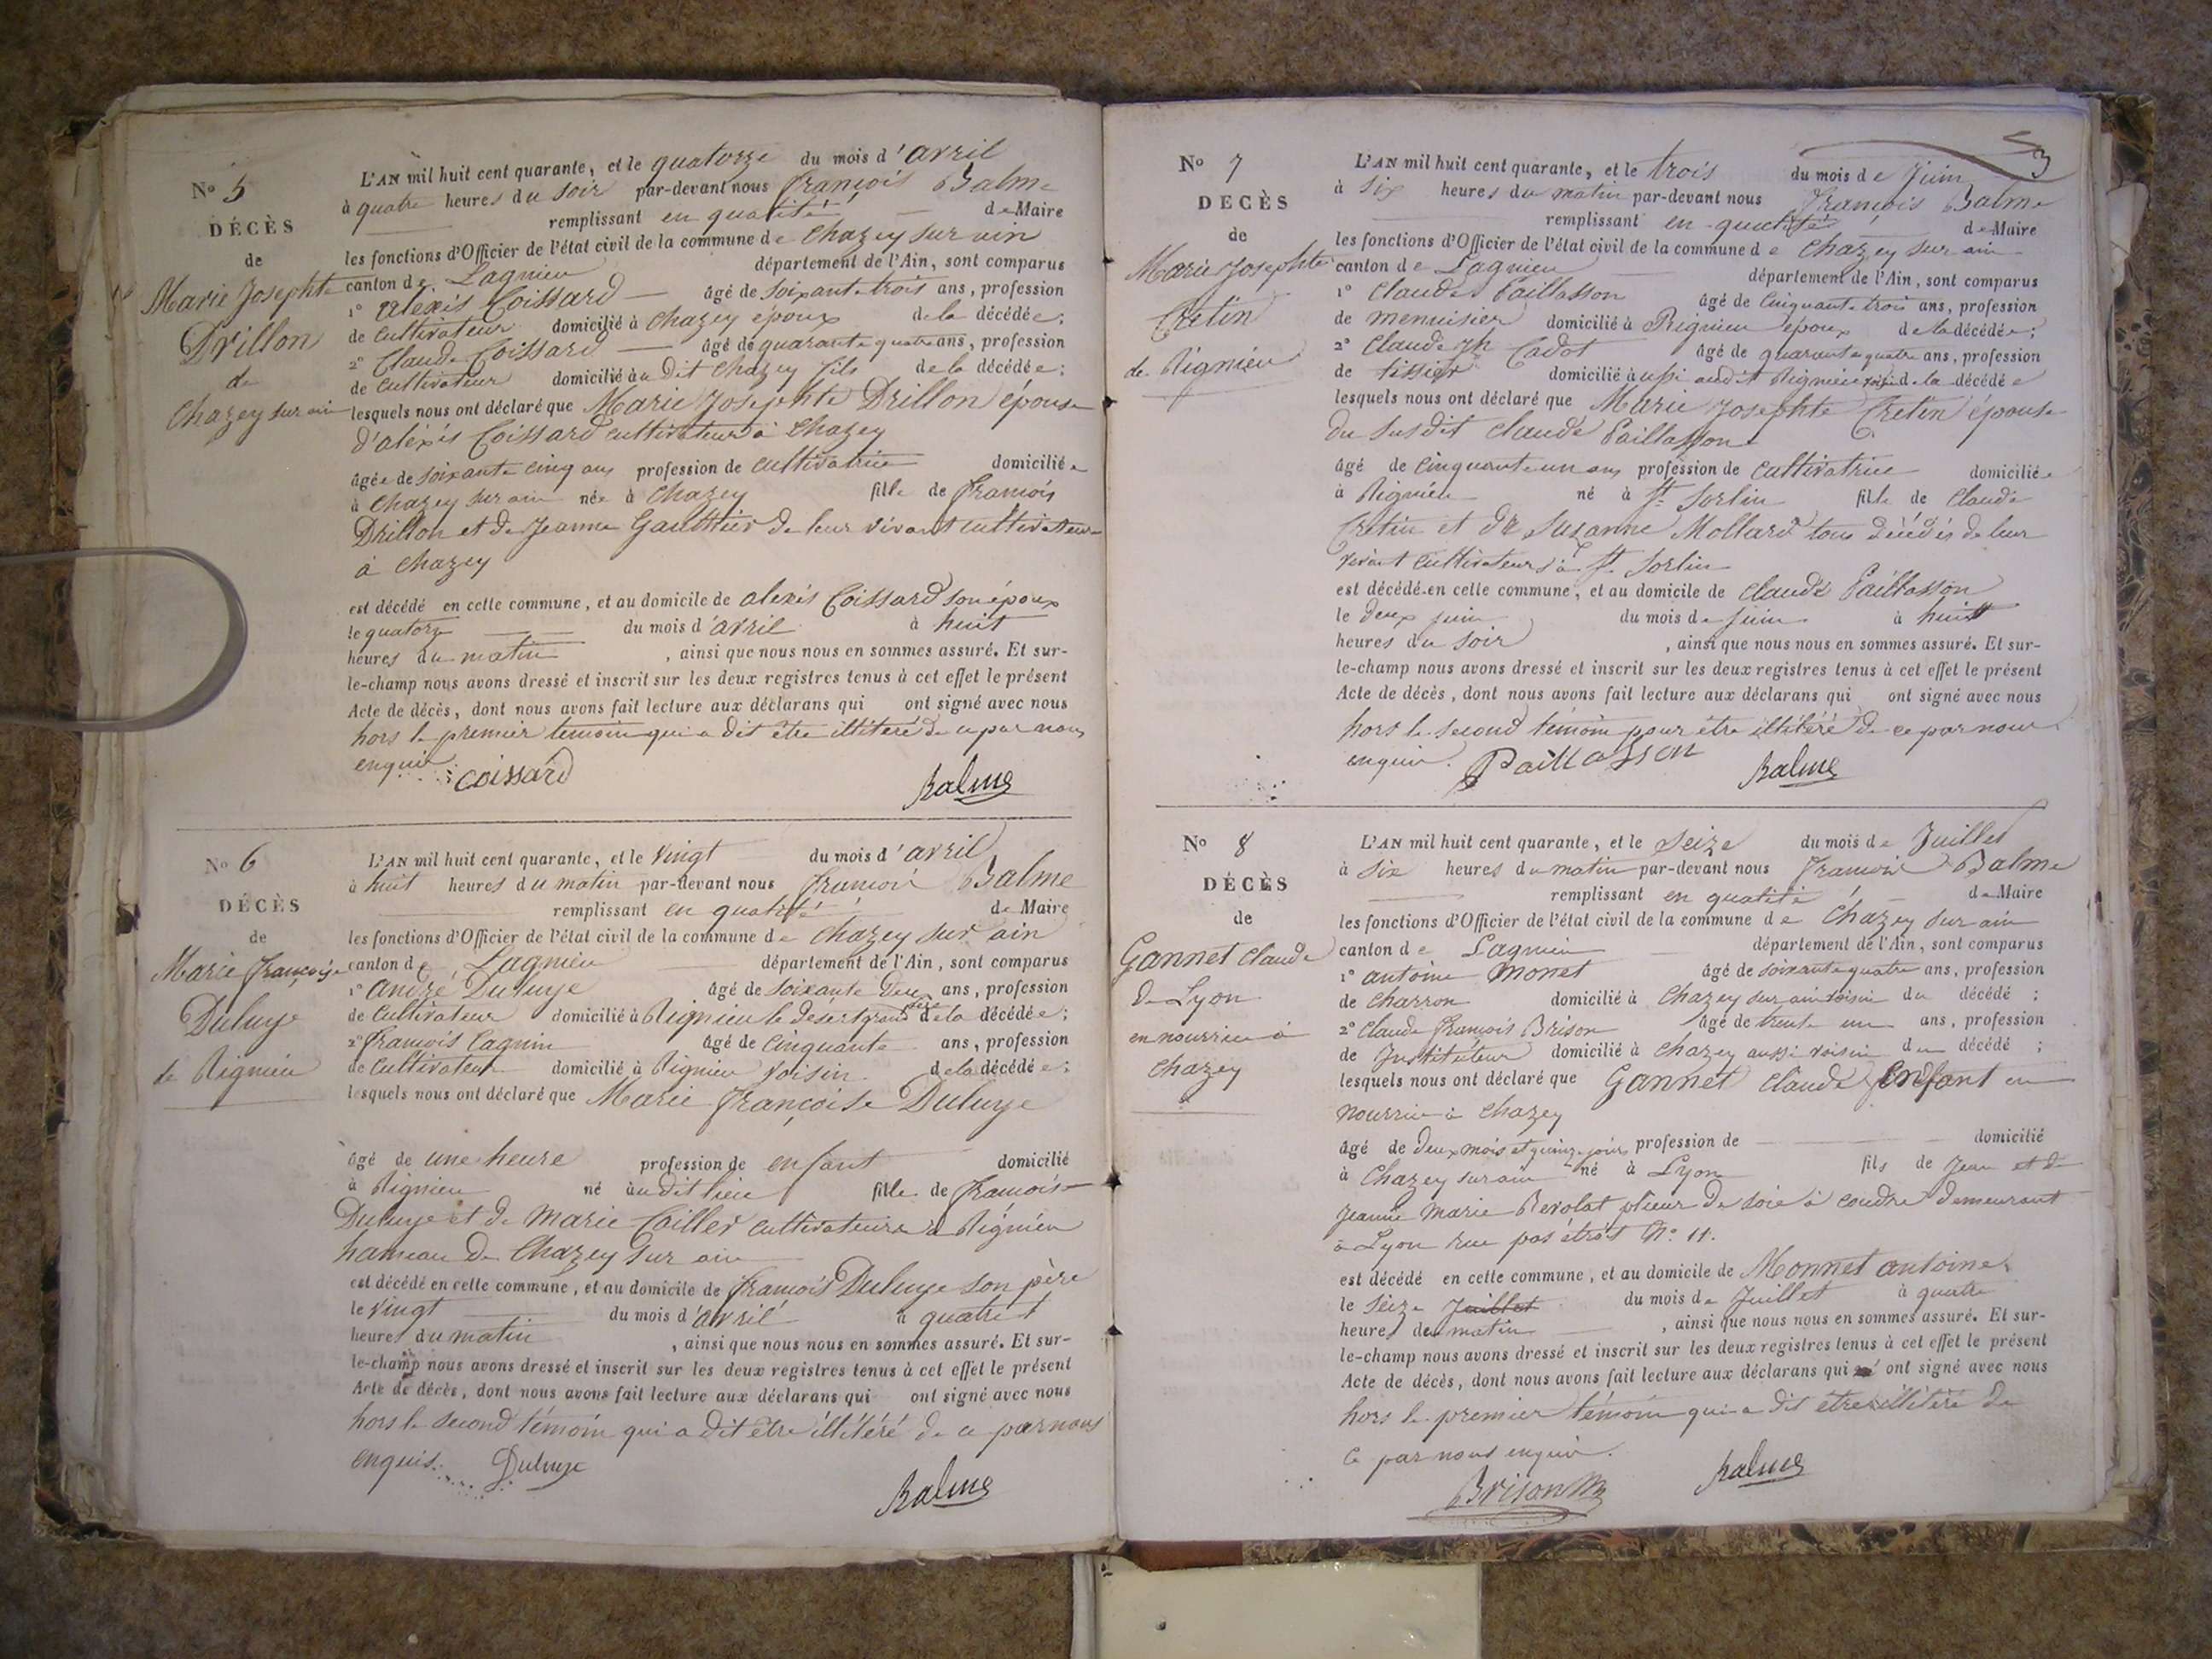 No 5
DÉCÈS
de
Marie Josephte
Drillon
de
Chazey sur ain
L'AN mil huit cent quarante, et le quatorze du mois d'avril
à quatre heures du soir par-devant nous françois Balme
remplissant en qualité de Maire
les fonctions d'Officier de l'état civil de la commune de Chazey sur ain
canton de Lagnieu département de l'Ain, sont comparus
1o alexis Coissard âgé de soixante trois ans, profession
de Cultivateur domicilié à Chazey époux de la décédée;
2o Claude Coissard âgé de quarante quatre ans, profession
de Cultivateur domicilié au dit Chazey fils de la décédée;
lesquels nous ont déclaré que Marie Josephte Drillon épouse
d'alexis Coissard cultivateur à Chazey
âgée de soixante cinq ans profession de cultivatrice domiciliée
à Chazey sur ain née à Chazey fille de françois
Drillon et de Jeanne Gauthier de leur vivant cultivateurs
à Chazey
est décédé en cette commune, et au domicile de alexis Coissard son époux
le quatorze du mois d'avril à huit
heures du matin, ainsi que nous nous en sommes assuré. Et sur-
le-champ nous avons dressé et inscrit sur les deux registres tenus à cet effet le présent
Acte de décès, dont nous avons fait lecture aux déclarans qui ont signé avec nous
hors le premier temoin qui a dit être illitéré de ce par nous
enquis. Coissard Balme
No 6
DÉCÈS
de
Marie françoise
Duluye
de Rignieu
L'AN mil huit cent quarante, et le vingt du mois d'avril
à huit heures du matin par-devant nous françois Balme
remplissant en qualité de Maire
les fonctions d'Officier de l'état civil de la commune de Chazey sur ain
canton de Lagnieu département de l'Ain, sont comparus
1o andré Duluye âgé de soixante deux ans, profession
de Cultivateur domicilié à Rignieu le desert grand père de la décédée;
2o françois âgé de cinquante ans, profession
de Cultivateur domicilié à Rignieu voisin de la décédée;
lesquels nous ont déclaré que Marie françoise Duluye
âgé de une heure profession de enfant domicilié
à Rignieu né au dit lieu fille de françois
Duluye et de Marie Cailler cultivateurs à Rignieu
hameau de Chazey sur ain
est décédé en cette commune, et au domicile de françois Duluye son père
le vingt du mois d'avril à quatre
heures du matin, ainsi que nous nous en sommes assuré. Et sur-
le-champ nous avons dressé et inscrit sur les deux registres tenus à cet effet le présent
Acte de décès, dont nous avons fait lecture aux déclarans qui ont signé avec nous
hors le second témoin qui a dit être illitéré de ce par nous
enquis. Duluye Balme
No 7
DÉCÈS
de
Marie Josephte
Cretin
de Rignieu
L'AN mil huit cent quarante, et le trois du mois de Juin
à six heures du matin par-devant nous françois Balme
remplissant en qualité de Maire
les fonctions d'Officier de l'état civil de la commune de Chazey sur ain
canton de Lagnieu département de l'Ain, sont comparus
1o Claude Paillasson âgé de cinquante trois ans, profession
de menuisier domicilié à Rignieu époux de la décédée;
2o Claude Jh Cadot âgé de quarante quatre ans, profession
de tissier domicilié aussi audit Rignieu de la décédée
lesquels nous ont déclaré que Marie Josephte Cretin épouse
du susdit Claude Paillasson
âgé de cinquante un ans profession de cultivatrice domiciliée
à Rignieu né à St Sorlin fille de Claude
Cretin et de Suzanne Mollard tous décédés de leur
vivant cultivateurs à St Sorlin
est décédé en cette commune, et au domicile de Claude Paillasson
le deux juin du mois de juin à huit
heures du soir, ainsi que nous nous en sommes assuré. Et sur-
le-champ nous avons dressé et inscrit sur les deux registres tenus à cet effet le présent
Acte de décès, dont nous avons fait lecture aux déclarans qui ont signé avec nous
hors le second témoin pour être illitéré de ce par nous
enquis. Paillasson Balme
No 8
DÉCÈS
de
Gannet Claude
de Lyon
en nourrice à
Chazey
L'AN mil huit cent quarante, et le seize du mois de Juillet
à six heures du matin par-devant nous françois Balme
remplissant en qualité de Maire
les fonctions d'Officier de l'état civil de la commune de Chazey sur ain
canton de Lagnieu département de l'Ain, sont comparus
1o antoine monet âgé de soixante quatre ans, profession
de charron domicilié à Chazey sur ain voisin du décédé;
2o Claude françois Brison âgé de trente un ans, profession
de Instituteur domicilié à Chazey aussi voisin du décédé;
lesquels nous ont déclaré que Gannet Claude Enfant en
nourrice à Chazey
âgé de deux mois et quinze jours profession de domicilié
à Chazey sur ain né à Lyon fils de Jean et de
Jeanne Marie Revolat plieur de soie à coudre demeurant
à Lyon rue pas étroit No 11.
est décédé en cette commune, et au domicile de Monnet antoine
le seize Juillet du mois de Juillet à quatre
heures du matin, ainsi que nous nous en sommes assuré. Et sur-
le-champ nous avons dressé et inscrit sur les deux registres tenus à cet effet le présent
Acte de décès, dont nous avons fait lecture aux déclarans qui ont signé avec nous
hors le premier témoin qui a dit être illitéré de
ce par nous enquis.
Brison Balme